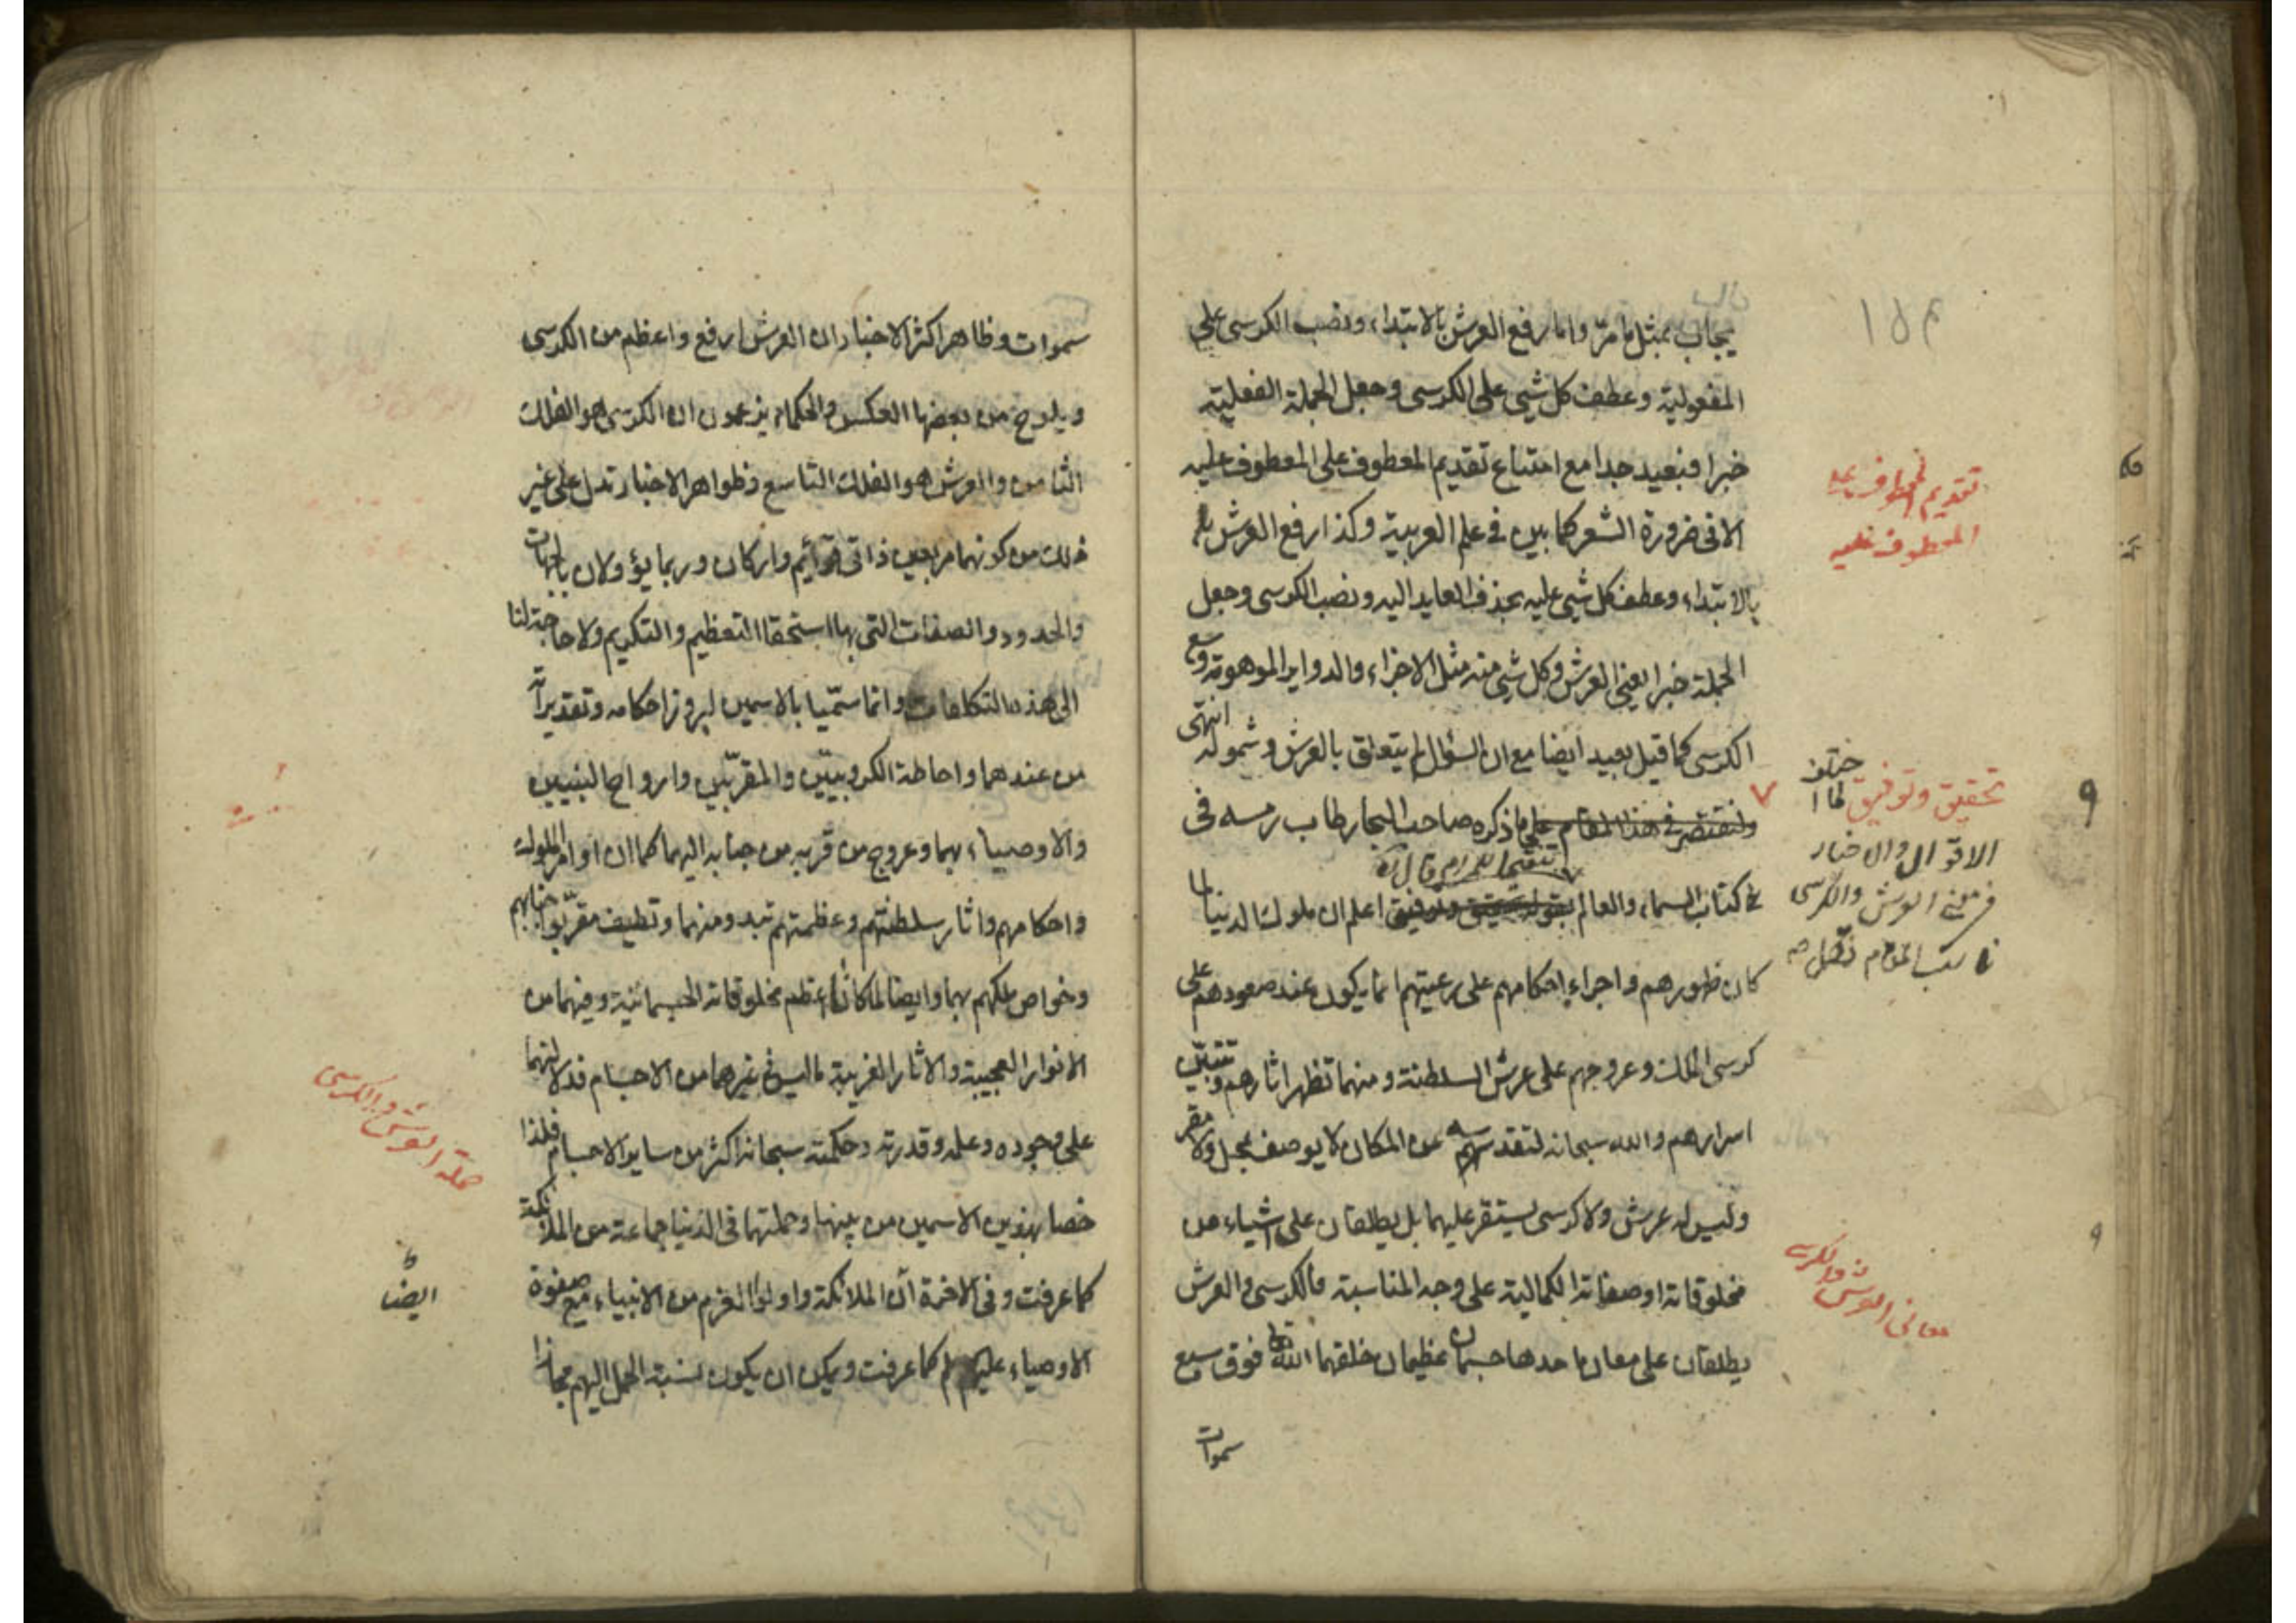 يجاب بمثل ما مرّ واما رفع العرش بالابتداء ونصب الكرسى على
المفعولية وعطف كل شىء على الكرسى وجعل الجملة الفعلية
خبرا فبعيد جدا مع امتناع تقديم المعطوف على المعطوف عليه
الا فى ضرورة الشعر كما بين فى علم العربية وكذا رفع العرش
بالابتداء وعطف كل شىء عليه بحذف العايد اليه ونصب الكرسى وجعل
الجملة خبرا يعنى العرش وكل شىء منه مثل الاجزاء والدواير الموهومة وسع
الكرسى كما قيل بعيد ايضا مع ان السؤال لم يتعلق بالعرش وشموله انتهى
ولنقتصر فى هذا المقام على ما ذكره صاحب البحار طاب رمسه فى
تتميما للمرام قال
فى كتاب السماء والعالم اعلم ان ملوك الدنيا لما
كان ظهورهم واجراء احكامهم على رعيتهم انما يكون عند صعودهم على
كرسى الملك وعروجهم على عرش السلطنة ومنهما تظهر اثارهم وتتبيّن
اسرارهم والله سبحانه لتقدسه عن المكان لا يوصف بمحل ولا مقر
وليس له عرش ولا كرسى يستقر عليهما بل يطلقان على اشياء من
مخلوقاته او صفاته الكمالية على وجه المناسبة فالكرسى والعرش
يطلقان على معان احدها جسمان عظيمان خلقهما الله فوق سبع
سموات
تقديم المعطوف على
المعطوف عليه
تحقيق وتوفيق لما اختلف
الاقوال والاخبار
فى معنى العرش والكرسى
معانى العرش والكرسى
سموات وظاهر اكثر الاخبار ان العرش ارفع واعظم من الكرسى
ويلوح من بعضها العكس والحكماء يزعمون ان الكرسى هو الفلك
الثامن والعرش هو الفلك التاسع وظواهر الاخبار تدل على غير
ذلك من كونهما مربعين ذاتى قوائم واركان وربما يؤولان بالجهات
والحدود والصفات التى بها استحقا التعظيم والتكريم ولا حاجة لنا
الى هذه التكلفات وانما سمّيا بالاسمين لبروز احكامه وتقديراته
من عندهما واحاطة الكروبيّين والمقرّبين وارواح النبيين
والاوصياء بهما وعروج من قربه من جنابه اليهما كما ان اوامر الملوك
واحكامهم واثار سلطنتهم وعظمتهم تبدو منهما وتطيف مقرّبوا جنابهم
وخواص ملكهم بهما وايضا لما كانا اعظم مخلوقاته الجسمانية وفيهما من
الانوار العجيبة والاثار الغريبة ما ليس فى غيرهما من الاجسام فدلالتهما
على وجوده وعلمه وقدرته وحكمته سبحانه اكثر من ساير الاجسام فلذا
خصا بهذين الاسمين من بينها وحملتهما فى الدنيا جماعة من الملائكة
كما عرفت وفى الاخرة اما الملائكة واولوا العزم من الانبياء مع صفوة
الاوصياء عليهم كما عرفت ويمكن ان يكون نسبة الحمل اليهم مجازا
حملة العرش والكرسى
ايضا